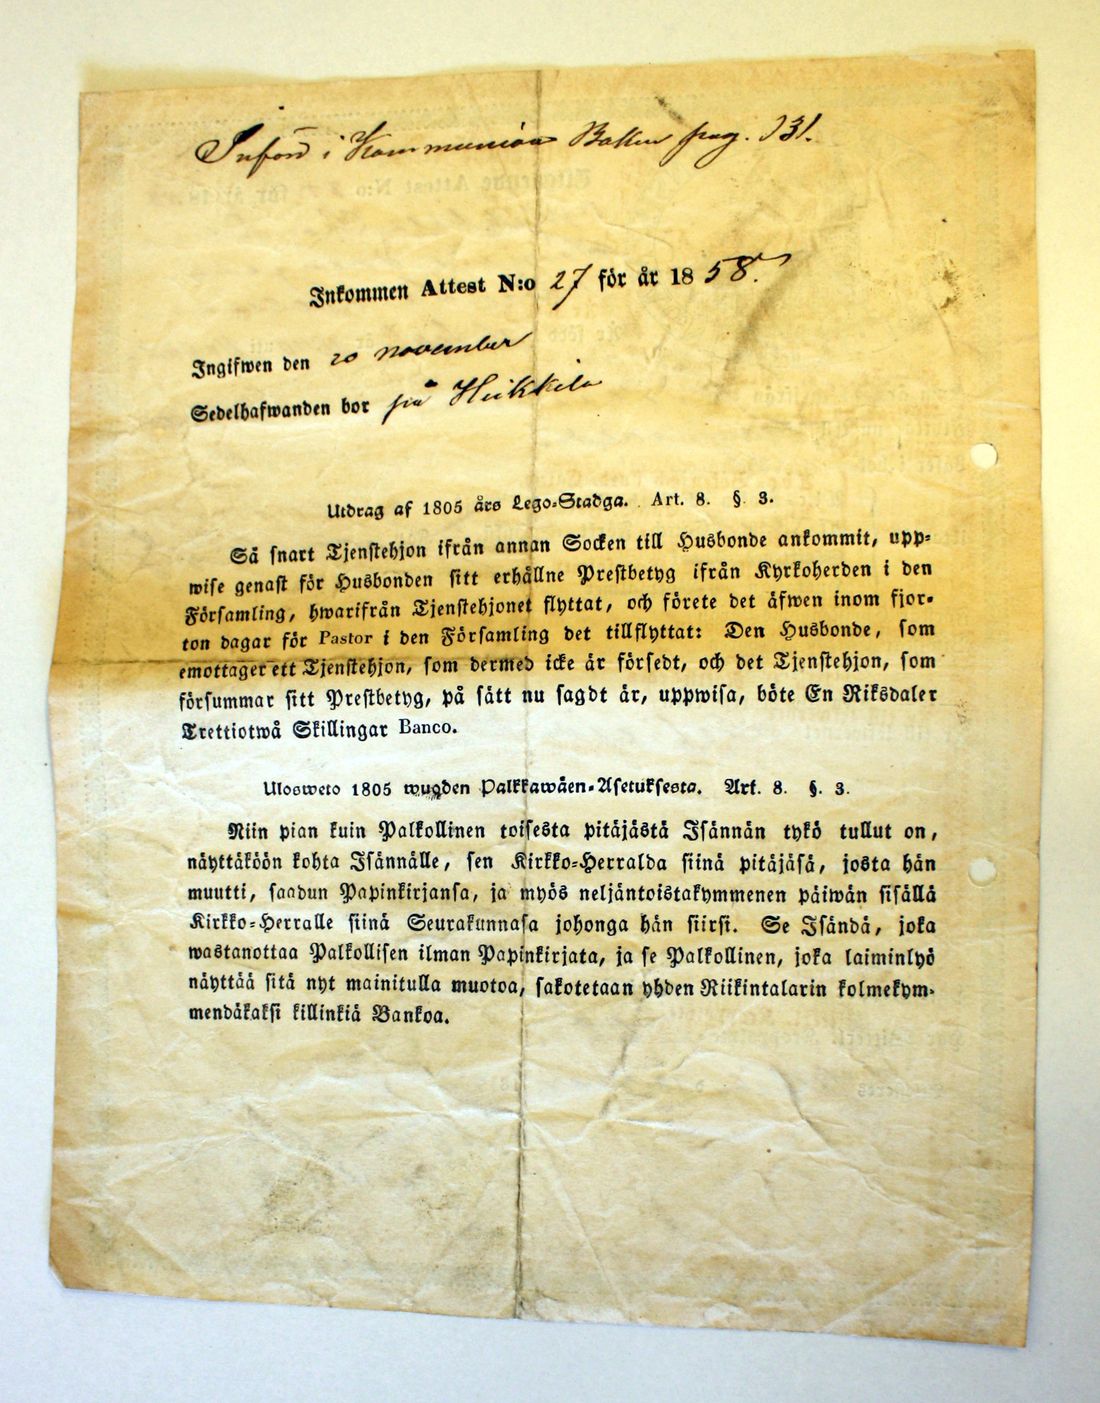 Införd i Kommunion Boken pag. 131.
Inkommen Attest N:o 27 för år 1858.
Ingifwen den 20 november
Sedelhafwanden bor på Heikkilä
Utdrag af 1805 års Lego-Stadga. Art. 8. §. 3.
Så snart Tjenstehjon ifrån annan Socken till Husbonde ankommit, upp-
wise genast för Husbonden sitt erhållne Prestbetyg ifrån Kyrkoherden i den
Församling, hwarifrån Tjenstehjonet flyttat, och förete det äfwen inom fjor-
ton dagar för Pastor i den Församling det tillflyttat: Den Husbonde, som
emottager ett Tjenstehjon, som dermed icke är försedt, och det Tjenstehjon, som
försummar sitt Prestbetyg, på sätt nu sagdt är, uppwisa, böte En Riksdaler
Trettiotwå Skillingar Banco.
Ulosweto 1805 wuoden Palkkawäen-Asetuksesta. Art. 8. §. 3.
Niin pian kuin Palkollinen toisesta pitäjästä Isännän tykö tullut on,
näyttäköön kohta Isännälle, sen Kirkko-Herralda siinä pitäjäsä, josta hän
muutti, saadun Papinkirjansa, ja myös neljäntoistakymmenen päiwän sisällä
Kirkko-Herralle siinä Seurakunnasa johonga hän siirsi. Se Isändä, joka
wastanottaa Palkollisen ilman Papinkirjata, ja se Palkollinen, joka laiminlyö
näyttää sitä nyt mainitulla muotoa, sakotetaan yhden Riikintalarin kolmekym-
mendäkaksi killinkiä Bankoa.